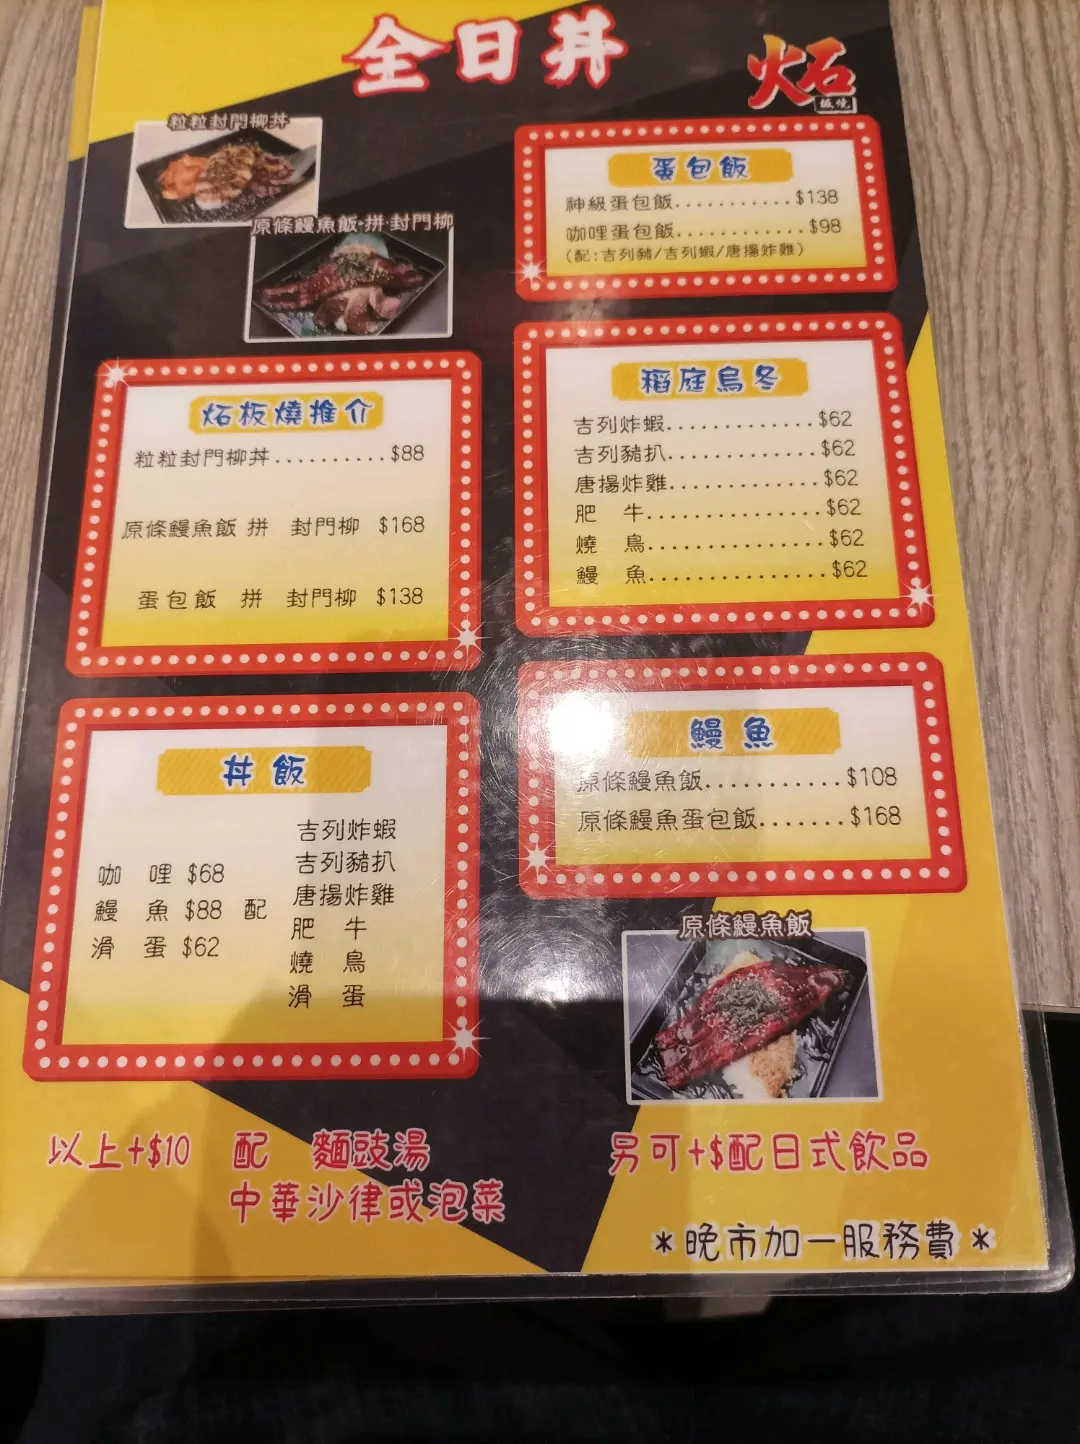 全日丼
炻
板燒
粒粒封門柳丼
原條鰻魚飯·拼·封門柳
蛋包飯
神級蛋包飯............$138
咖哩蛋包飯............$98
(配:吉列豬/吉列蝦/唐揚炸雞)
稻庭烏冬
吉列炸蝦.............$62
吉列豬扒.............$62
唐揚炸雞.............$62
肥 牛...............$62
燒 鳥...............$62
鰻 魚...............$62
炻板燒推介
粒粒封門柳丼..........$88
原條鰻魚飯 拼 封門柳 $168
蛋包飯 拼 封門柳 $138
丼飯
咖 哩 $68
鰻 魚 $88 配
滑 蛋 $62
吉列炸蝦
吉列豬扒
唐揚炸雞
肥 牛
燒 鳥
滑 蛋
鰻魚
原條鰻魚飯..........$108
原條鰻魚蛋包飯.......$168
原條鰻魚飯
以上+$10 配 麵豉湯
中華沙律或泡菜
另可+$配日式飲品
*晚市加一服務費*